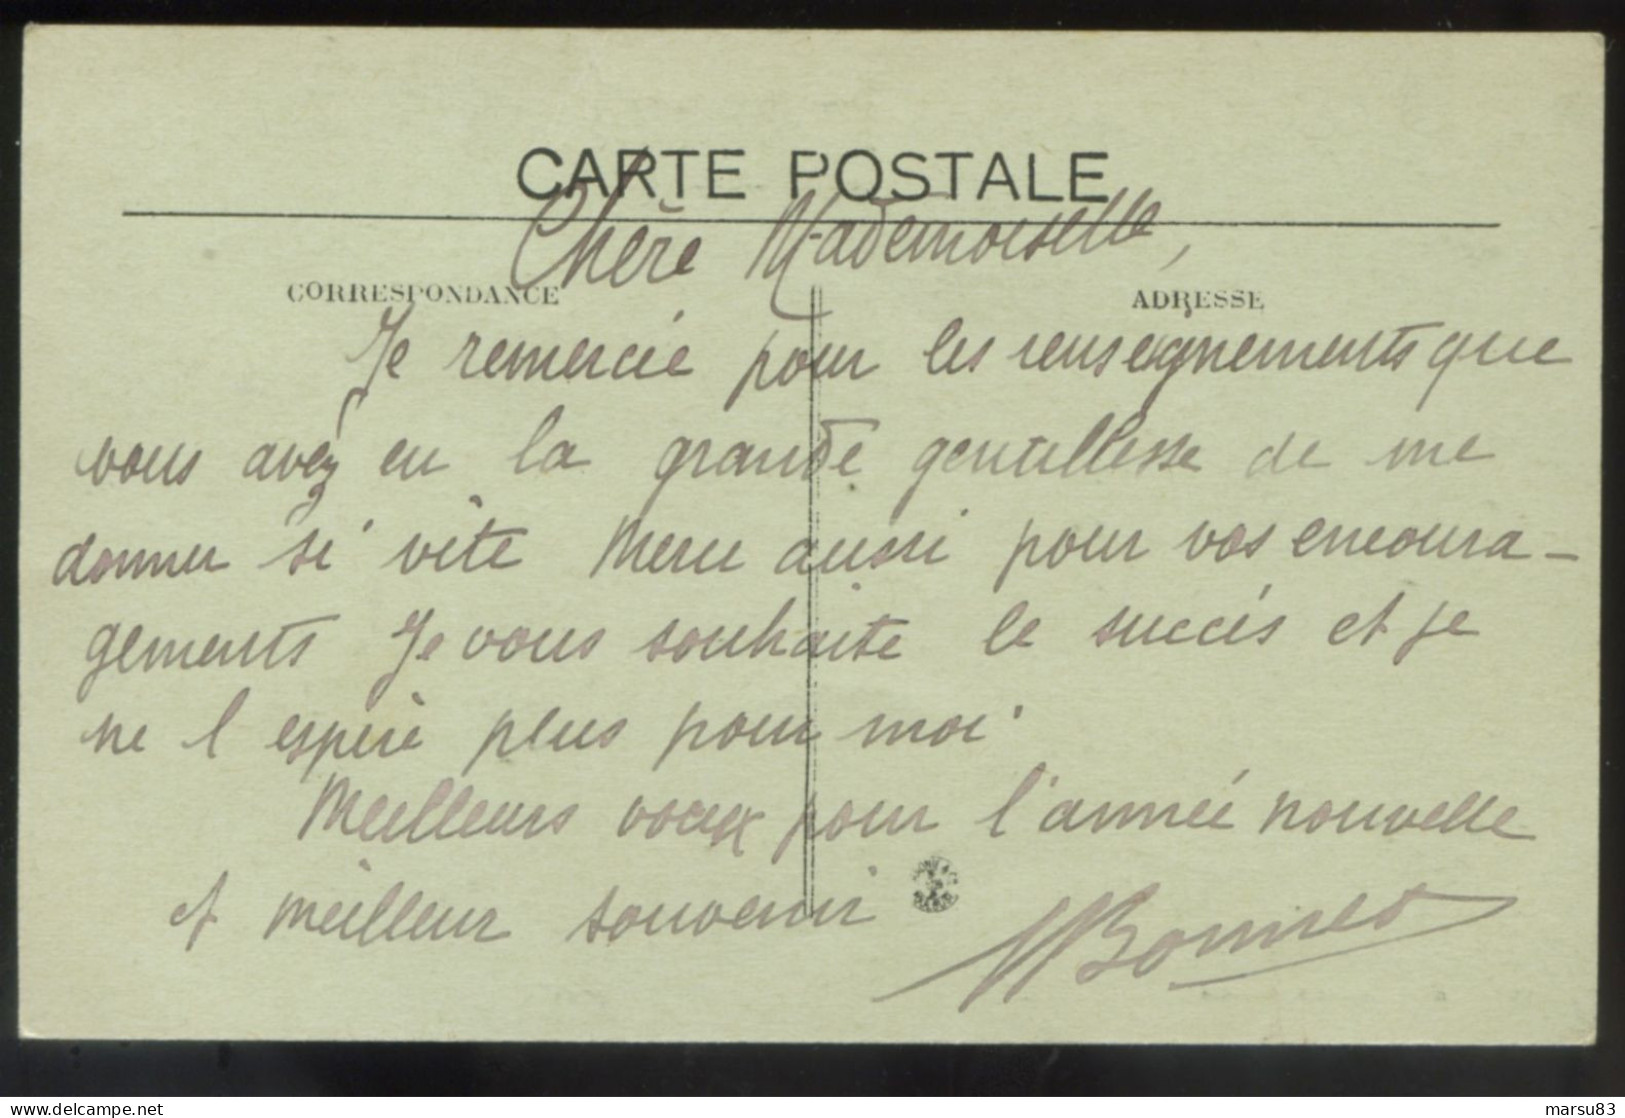 CARTE POSTALE
Chère Mademoiselle,
CORRESPONDANCE
ADRESSE
Je remercie pour les renseignements que
vous avez eu la grande gentillesse de me
donner si vite Merci aussi pour vos encoura-
gements Je vous souhaite le succès et je
ne l espère plus pour moi.
Meilleurs voeux pour l'année nouvelle
et meilleur souvenir
Bonnet
marsu83